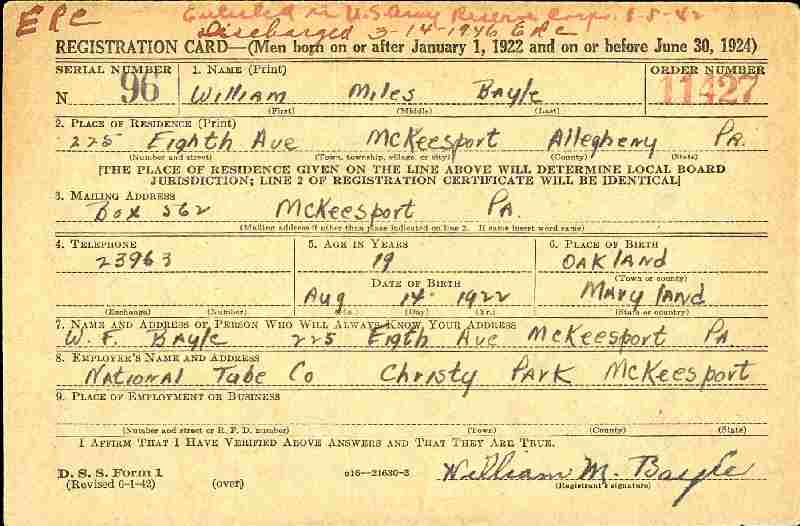 ERC Enlisted in U.S. Army Reserve Corps. 8-5-42
Discharged 3-14-1946 ERC
REGISTRATION CARD—(Men born on or after January 1, 1922 and on or before June 30, 1924)
SERIAL NUMBER 1. NAME (Print) ORDER NUMBER
N 96 William Miles Bayle 11427
(First) (Middle) (Last)
2. PLACE OF RESIDENCE (Print)
225 Eighth Ave McKeesport Allegheny PA.
(Number and street) (Town, township, village, or city) (County) (State)
[THE PLACE OF RESIDENCE GIVEN ON THE LINE ABOVE WILL DETERMINE LOCAL BOARD
JURISDICTION; LINE 2 OF REGISTRATION CERTIFICATE WILL BE IDENTICAL]
3. MAILING ADDRESS
Box 562 McKeesport PA.
(Mailing address if other than place indicated on line 2. If same insert word same)
4. TELEPHONE 5. AGE IN YEARS 6. PLACE OF BIRTH
23963 19 OAKLAND
DATE OF BIRTH (Town or county)
Aug 14 1922 Maryland
(Exchange) (Number) (Mo.) (Day) (Yr.) (State or country)
7. NAME AND ADDRESS OF PERSON WHO WILL ALWAYS KNOW YOUR ADDRESS
W. F. Bayle 225 Eigth Ave McKeesport PA.
8. EMPLOYER'S NAME AND ADDRESS
National Tube Co Christy Park McKeesport
9. PLACE OF EMPLOYMENT OR BUSINESS
(Number and street or R. F. D. number) (Town) (County) (State)
I AFFIRM THAT I HAVE VERIFIED ABOVE ANSWERS AND THAT THEY ARE TRUE.
D. S. S. Form 1 o16—21630-2 William M. Bayle
(Revised 6-1-42) (over) (Registrant's signature)